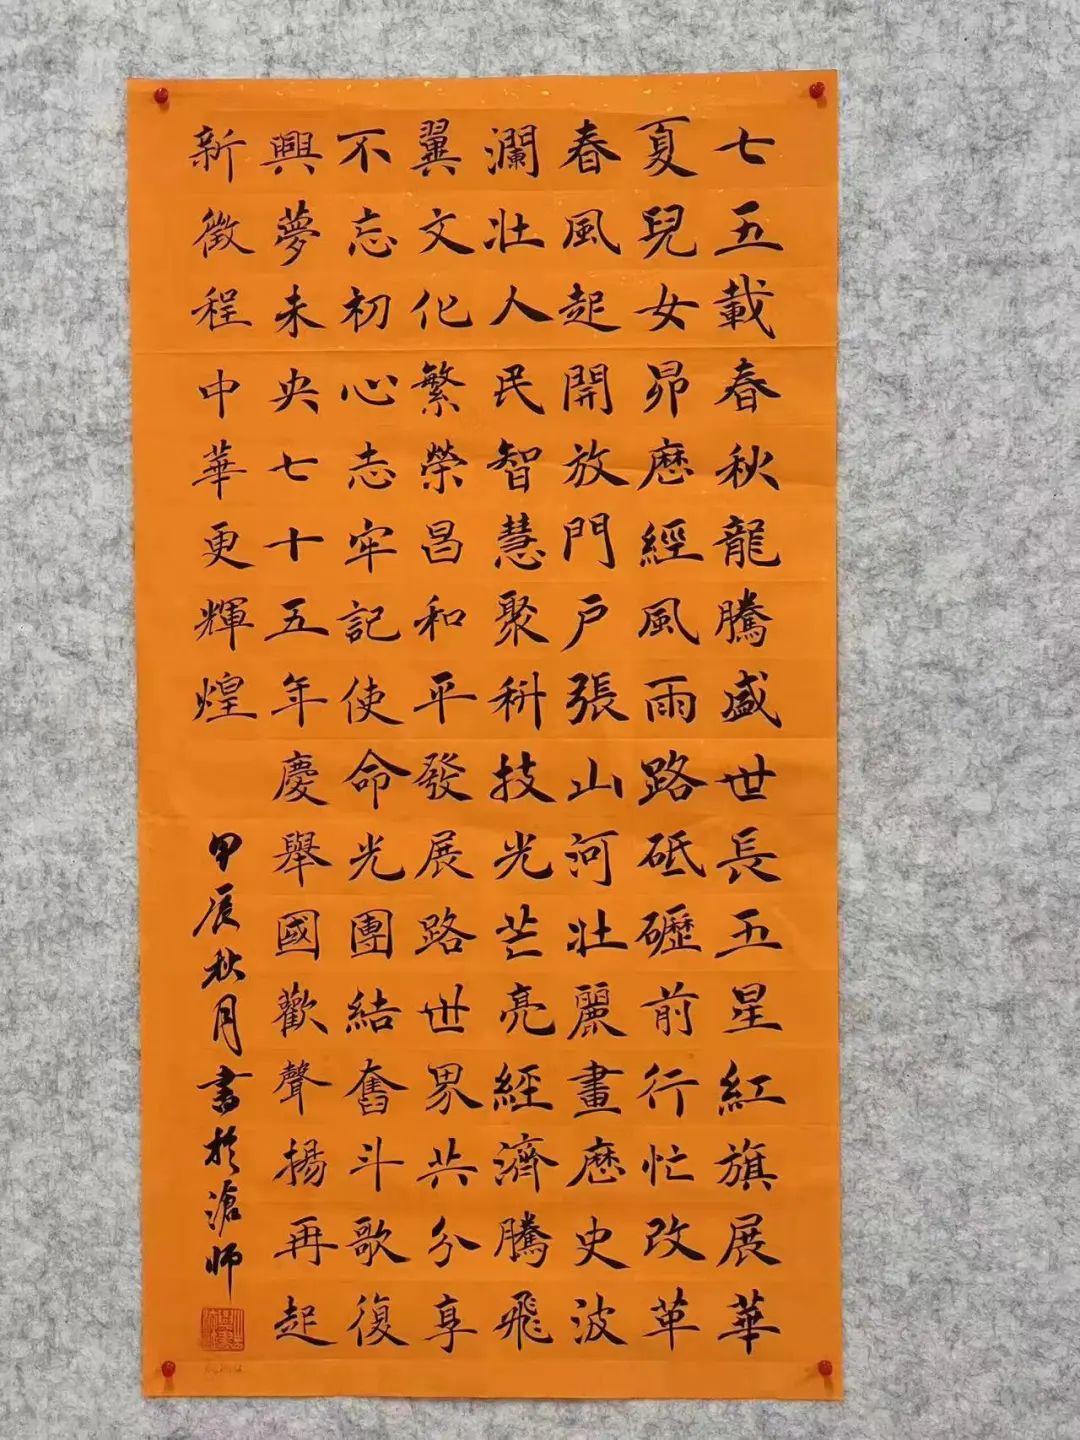 七五載春秋龍騰盛世長五星紅旗展華
夏兒女昂歷經風雨路砥礪前行忙改革
春風起開放門戶張山河壯麗畫歷史波
瀾壯人民智慧聚科技光芒亮經濟騰飛
翼文化繁榮昌和平發展路世界共分享
不忘初心志牢記使命光團結奮斗歌復
興夢未央七十五年慶舉國歡聲揚再起
新徵程中華更輝煌
甲辰秋月書於滄師